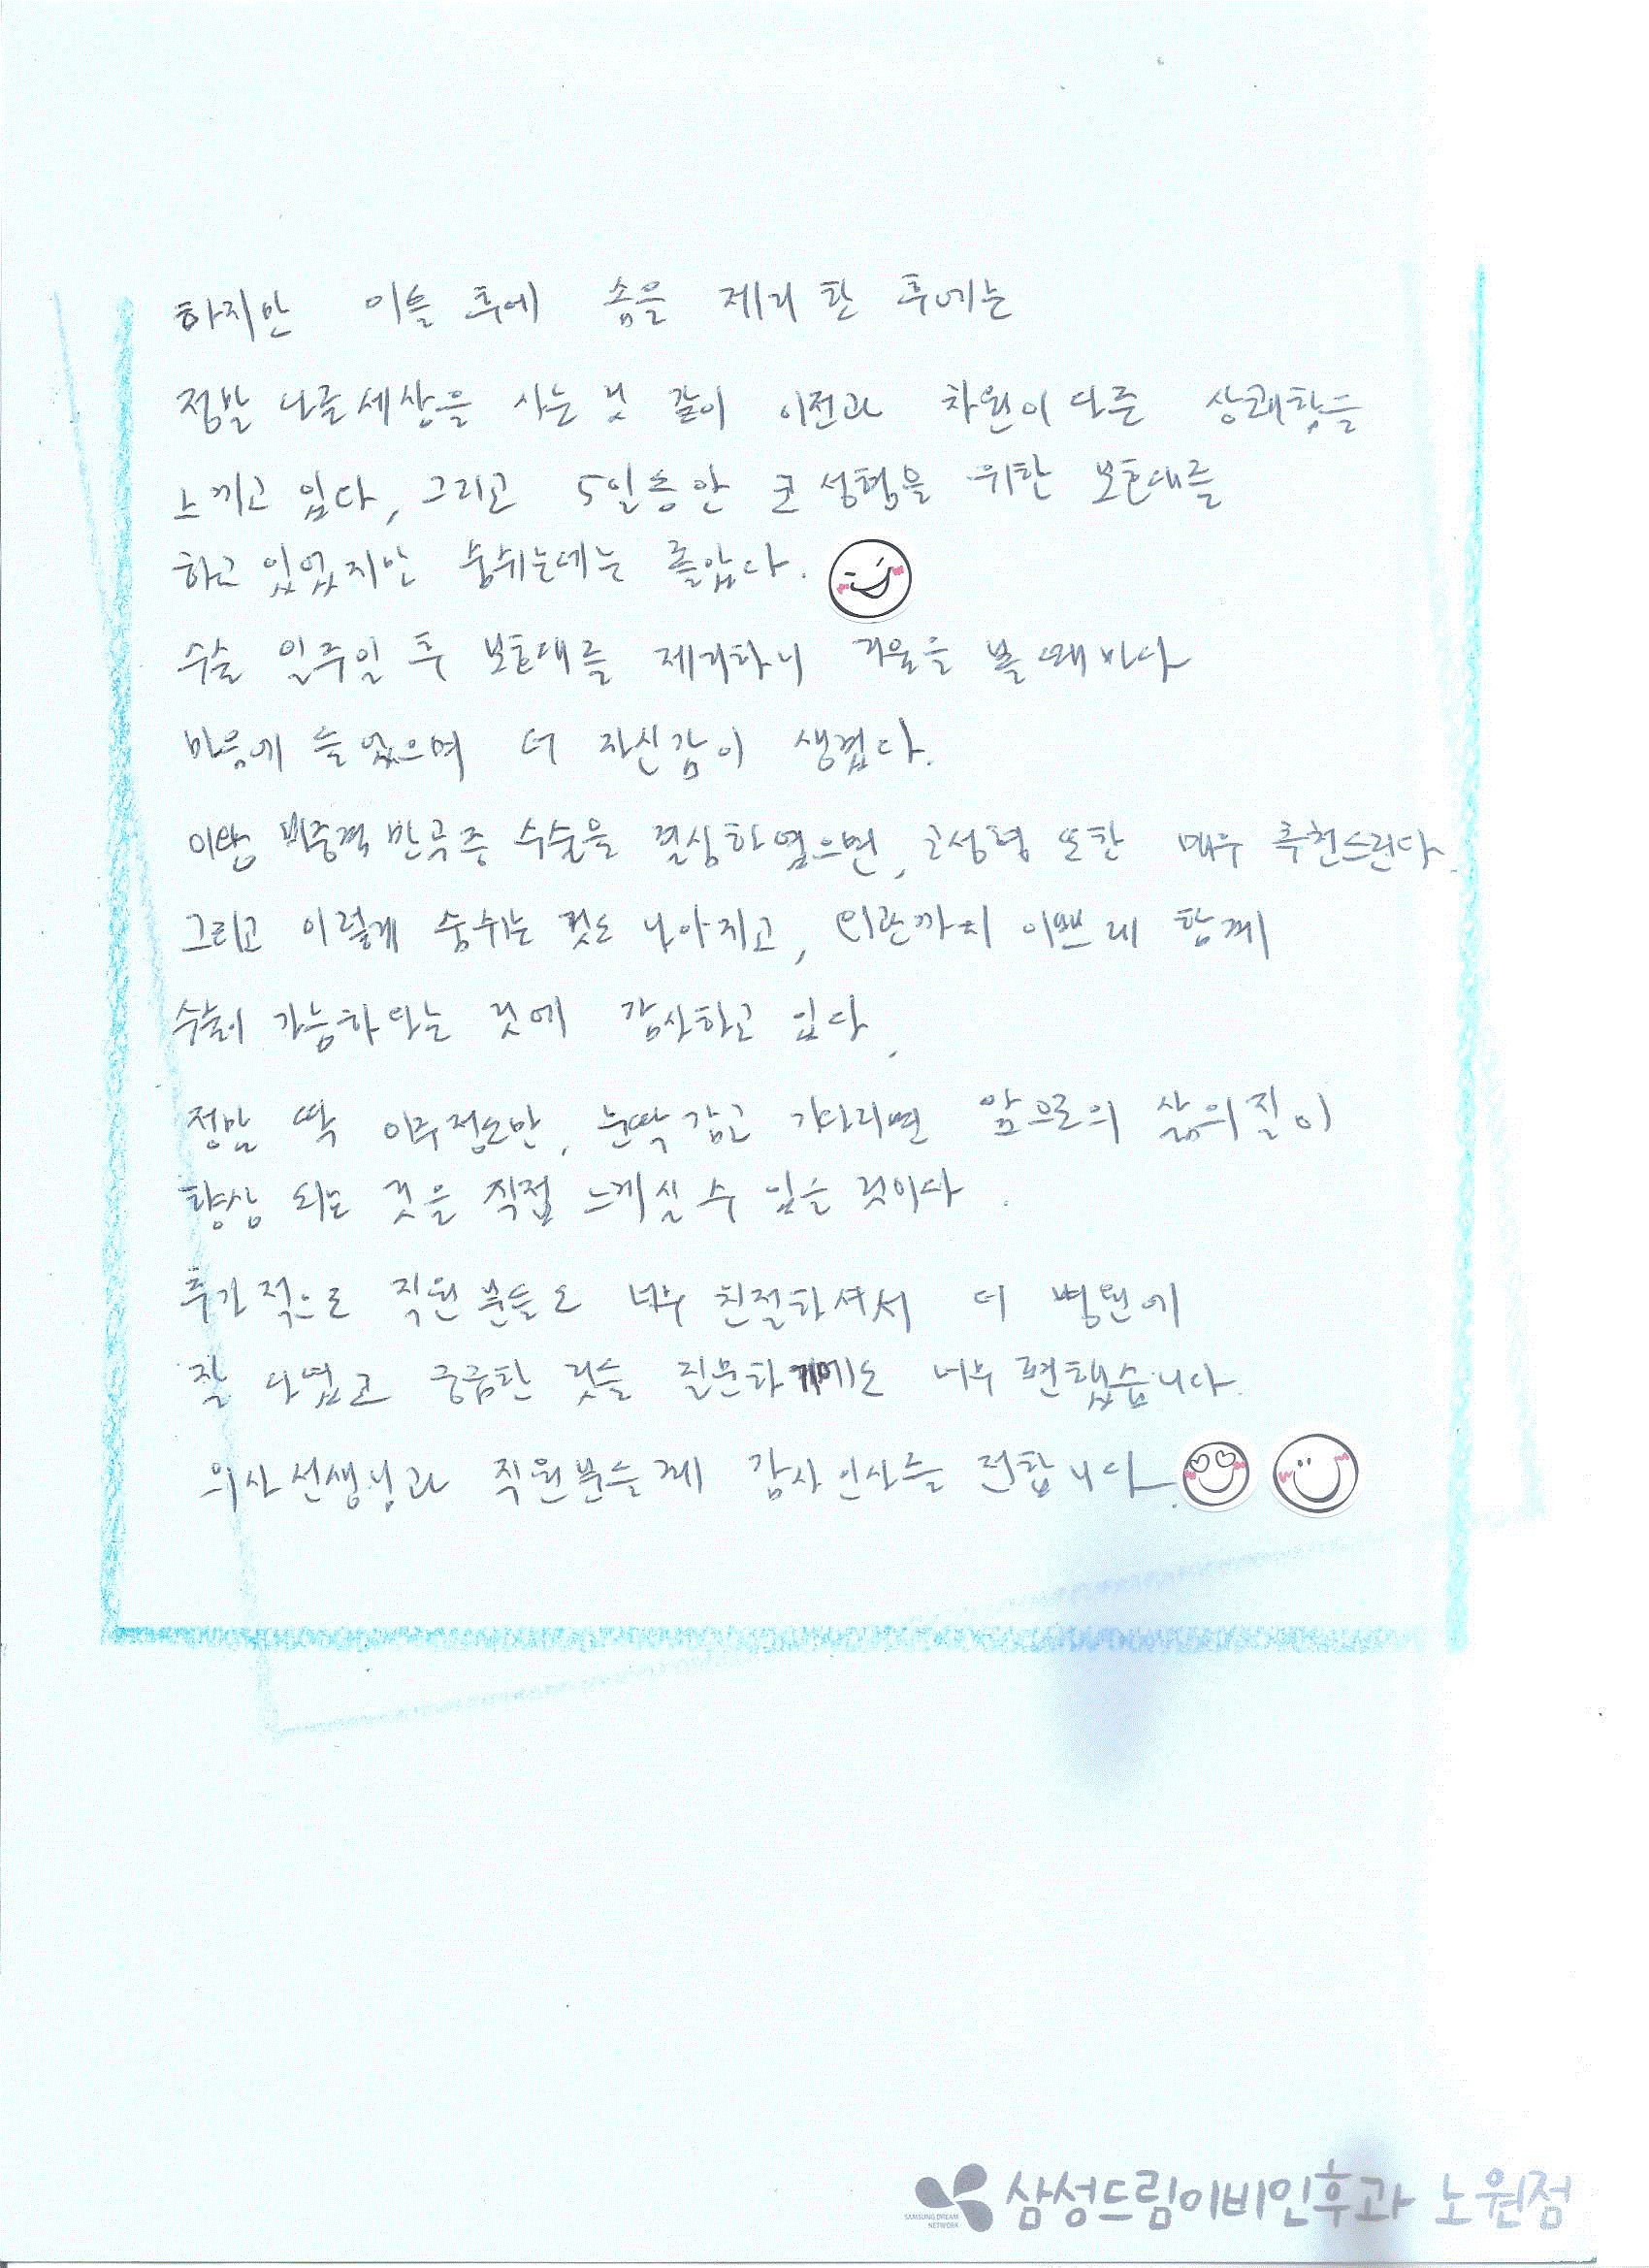 하지만 이틀 후에 솜을 제거 한 후에는
정말 다른세상을 사는 것 같이 이전과 차원이 다른 상쾌함을
느끼고 있다, 그리고 5일동안 코 성형을 위한 보호대를
하고 있었지만 숨쉬는데는 좋았다.
수술 일주일 후 보호대를 제거하니 거울을 볼 때마다
마음에 들었으며 더 자신감이 생겼다.
이왕 비중격 만곡증 수술을 결심하였으면, 코성형 또한 매우 추천드린다.
그리고 이렇게 숨쉬는 것도 나아지고, 외관까지 이쁘게 함께
수술이 가능하다는 것에 감사하고 있다.
정말 딱 이주정도만, 눈딱감고 기다리면 앞으로의 삶의질이
향상 되는 것을 직접 느끼실 수 있을 것이다.
추가적으로 직원분들도 너무 친절하셔서 더 병원에
잘 다녔고 궁금한 것들 질문하기에도 너무 편했습니다.
의사선생님과 직원분들께 감사인사를 전합니다.
SAMSUNG DREAM
NETWORK
삼성드림이비인후과 노원점